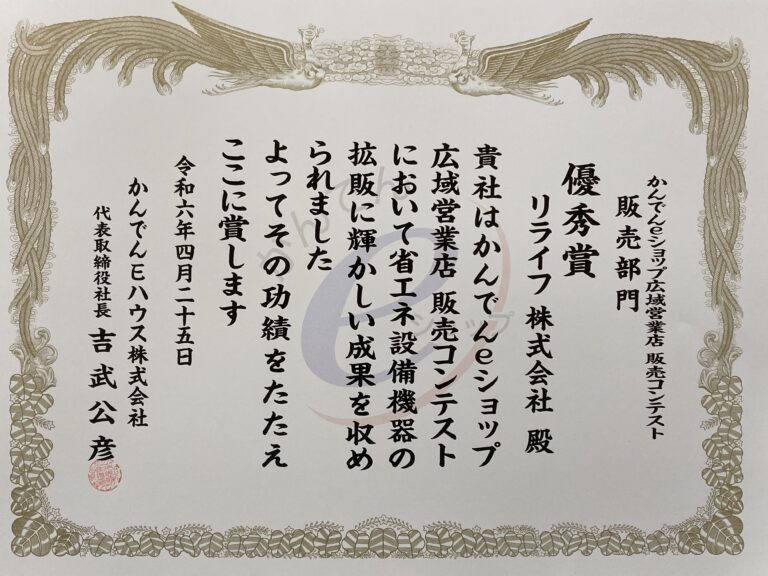 かんでんeショップ広域営業店 販売コンテスト
販売部門
優秀賞
リライフ 株式会社 殿
貴社はかんでんeショップ
広域営業店 販売コンテスト
において省エネ設備機器の
拡販に輝かしい成果を収め
られました
よってその功績をたたえ
ここに賞します
令和六年四月二十五日
かんでんEハウス株式会社
代表取締役社長 吉武公彦
かんでん
e
ショップ